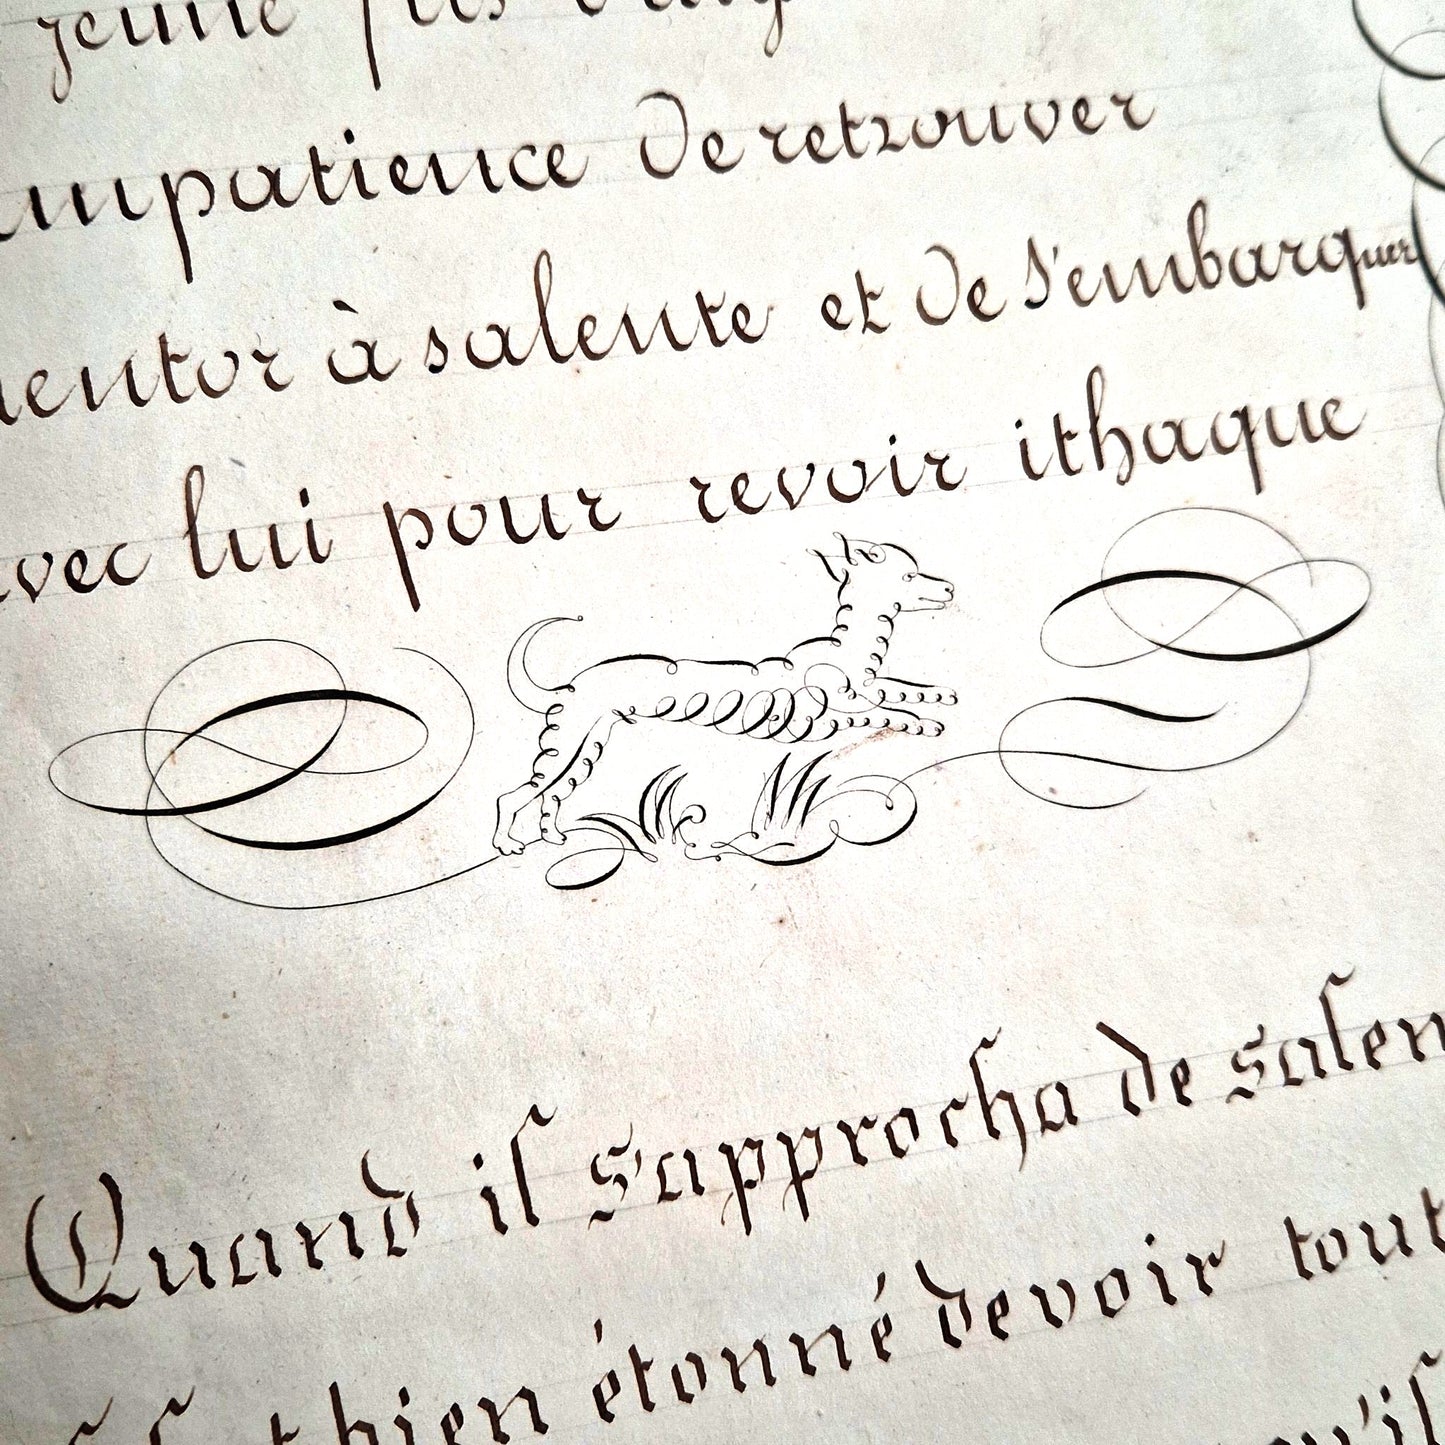 jeune fils d'Ul
impatience de retrouver
mentor à salente et de s'embarquer
avec lui pour revoir ithaque
Quand il s'approcha de salen
bien étonné de voir tout
qu'il